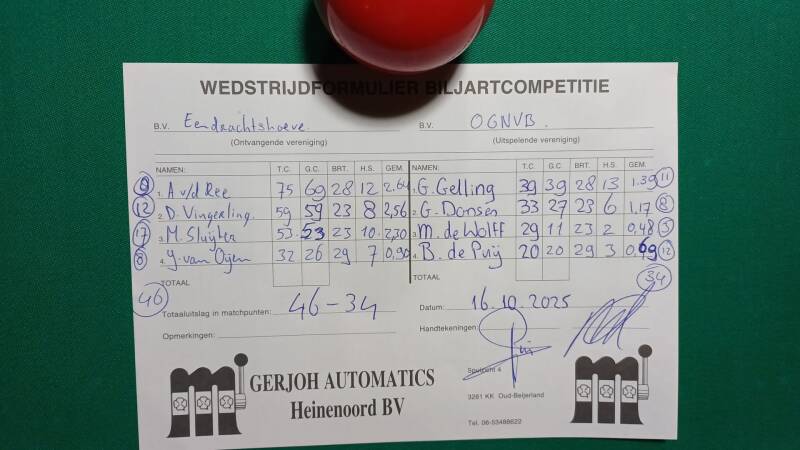 WEDSTRIJDFORMULIER BILJARTCOMPETITIE
B.V. Eendrachtshoeve. B.V. OGNVB.
(Ontvangende vereniging) (Uitspelende vereniging)
NAMEN: T.C. G.C. BRT. H.S. GEM. NAMEN: T.C. G.C. BRT. H.S. GEM.
1. A v/d Ree 75 69 28 12 2.64 1. G. Gelling 39 39 28 13 1.39 11
12 2 D. Vingerling. 59 59 23 8 2,56 2 G. Donsen 33 27 23 6 1,17 8
17 3 M. Sluyter 53 53 23 10 2,30 3 M. de Wolff 29 11 23 2 0,48 3
8 4. J. van Oyen 32 26 29 7 0,90 4 B. de Puij 20 20 29 3 0,69 12
TOTAAL TOTAAL 34
46
Totaaluitslag in matchpunten: 46-34 Datum: 16.10.2025
Opmerkingen: Handtekeningen:
GERJOH AUTOMATICS
Heinenoord BV
Spuipunt 4
3261 KK Oud-Beijerland
Tel. 06-53488622